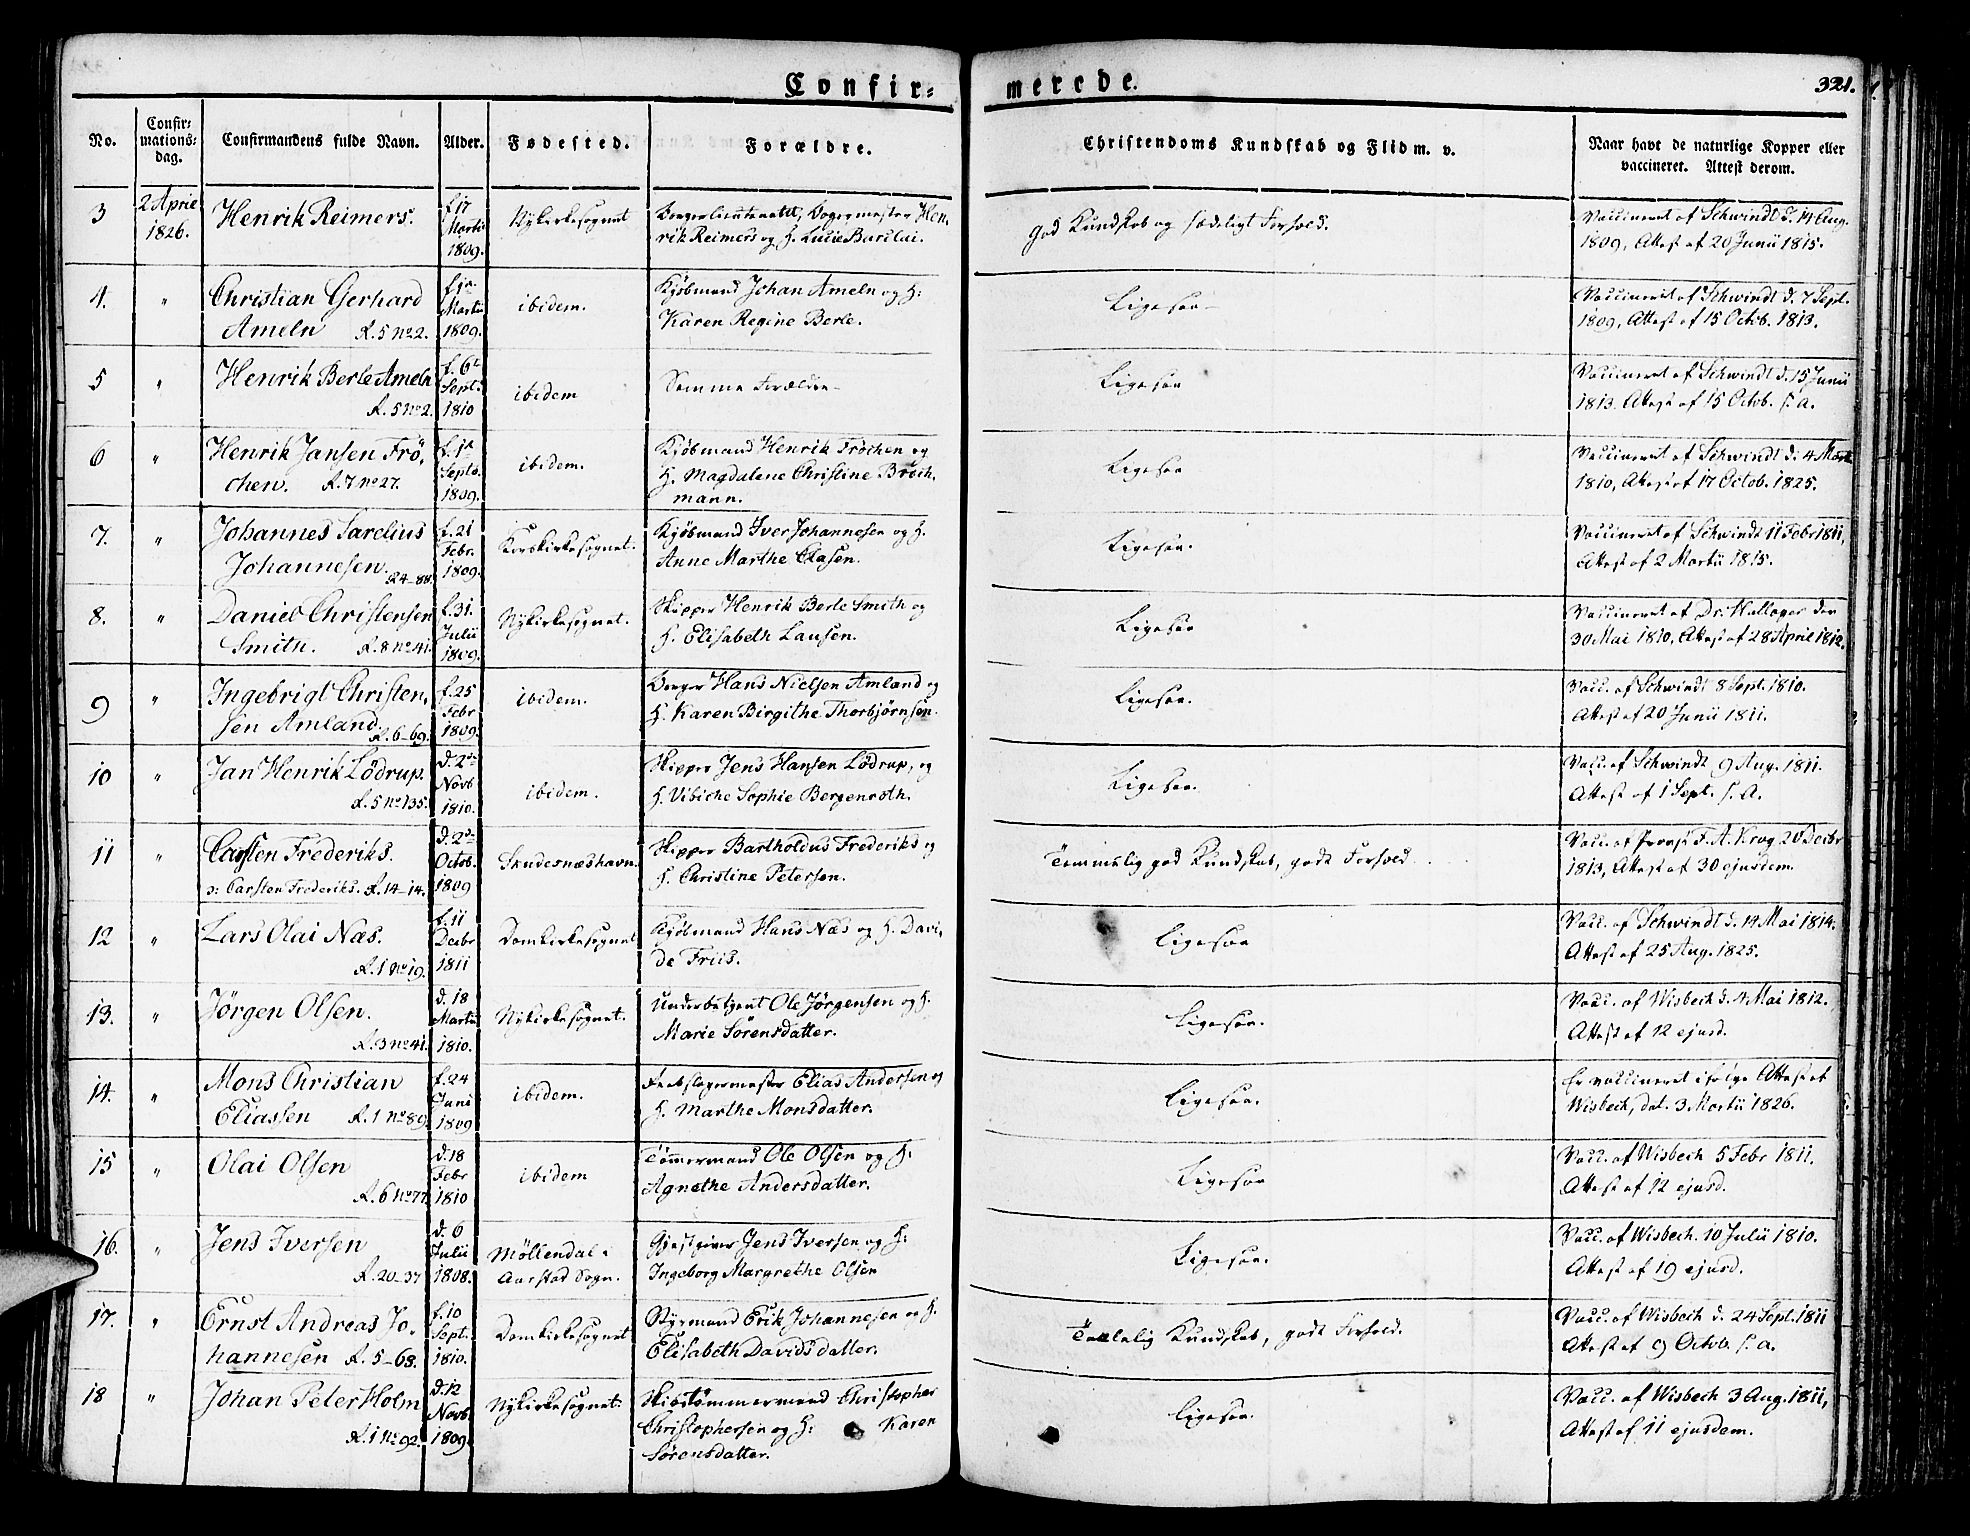 Confir= merede. 321.
No. Confir=mations=dag. Confirmandens fulde Navn. Alder. Fødested. Forældre. Christendoms Kundskab og Flid m. v. Naar havt de naturlige Kopper eller vaccineret. Attest derom.
3 2 April 1826. Henrik Reimers. f. 17 Martii 1809. Nykirkesognet Borgerlieutenant, Bagermester Hen,
rik Reimers og H. Lucie Barclai. God Kundskab og sædeligt Forhold. Vaccineret af Schwindt d. 14 Aug.
1809, Attest af 20 Junii 1815.
4. " Christian Gerhard
Ameln R. 5 No 2. Martii 1809. ibidem. Kjøbmand Johan Ameln og H:
Karen Regine Berle. Ligesaa Vaccineret af Schwindt d. 7 Sept.
1809, Attest af 15 Octob. 1813.
5 " Henrik Berle Ameln
R. 5 No 2. f. 6t Sept: 1810 ibidem Samme Forældre Ligesaa Vaccineret af Schwindt d. 15 Junii
1813. Attest af 15 Octob. s. a.
6 " Henrik Jansen Frö,
chen. R. 7 No 27. Septb. 1809. ibidem. Kjøbmand Henrik Fröchen og
H. Magdalene Christine Broch,
mann. Ligesaa Vaccineret af Schwindt d. 4 Martii
1810, Attest af 17 Octob. 1825.
7. " Johannes Sarelius
Johannesen. R 4-88. f. 21 Febr. 1809. Korskirkesognet. Kjøbmand Iver Johannesen og H.
Anne Marthe Clasen. Ligesaa. Vaccineret af Schwindt 11 Febr 1811,
Attest af 2 Martii 1815.
8. " Daniel Christensen
Smith. R. 8 No 41. f. 31. Julii 1809. Nykirkesognet. Skipper Henrik Berle Smith og
H. Elisabeth Lausen. Ligesaa Vaccineret af Dr: den
30 Mai 1810, Attest af 28 April 1812.
9 " Ingebrigt Christen,
sen Amland R. 6-69. f. 25 Febr 1809. ibidem. Borger Hans Nielsen Amland og
H. Karen Birgithe Thorbjörnsen. Ligesaa. Vacc. af Schwindt 8 Sept. 1810.
Attest af 20 Junii 1811.
10 " Jan Henrik Lödrup.
R. 5 No 135. Novb 1810. ibidem. Skipper Jens Hansen Lödrup, og
H. Vibiche Sophie Bergenroth. Ligesaa. Vacc. af Schwindt 9 Aug. 1811.
Attest af 1 Sept. s. A.
11 " Carsten Frederiks.
ɔ: Carsten Frederiks. R. 14-14. Octob. 1809 Skudesnæshavn. Skipper Bartholdus Frederiks og
H. Christine Petersen. Temmelig god Kundskab, godt Forhold Vacc. af Provst F. A. Krog 20 Decbr
1813, Attest af 30 ejusdem.
12 " Lars Olai Næs.
R. 1 No 19. f. 11 Decbr 1811 Domkirkesognet Kjøbmand Hans Næs og H. Davi,
de Friis. Ligesaa Vacc. af Schwindt d. 14 Mai 1814.
Attest af 25 Aug. 1825.
13. " Jörgen Olsen.
R. 3 No 41. d. 18 Martii 1810. Nykirkesognet. Underbetjent Ole Jörgensen og H.
Marie Sörensdatter. Ligesaa. Vacc. af Wisbech d. 4 Mai 1812.
Attest af 12 ejusd.
14. " Mons Christian
Eliassen R. 1 No 89. f. 24 Juni 1809 ibidem. Reebslagermester Elias Andersen og
H. Marthe Monsdatter. Ligesaa. Er vaccineret ifølge Attest af
Wisbech, dat. 3 Martii 1826.
15 " Olai Olsen
R. 6 No 77. d. 18 Febr 1810 ibidem Tømmermand Ole Olsen og H:
Agnethe Andersdatter. Ligesaa Vacc. af Wisbech 5 Febr 1811.
Attest af 12 ejusd.
16. " Jens Iversen
R. 20-37 d. 6 Julii 1808. Möllendal i
Aarstad Sogn. Gjestgiver Jens Iversen og H:
Ingeborg Margrethe Olsen Ligesaa. Vacc. af Wisbech. 10 Julii 1810.
Attest af 19 ejusd.
17. " Ernst Andreas Jo,
hannesen R. 5-68. f. 10 Sept. 1810. Domkirkesognet Styrmand Erik Johannesen og H.
Elisabeth Davidsdatter. Taalelig Kundskab, godt Forhold. Vacc. af Wisbech d. 24 Sept. 1811
Attest af 9 Octob. s. a.
18 " Johan Peter Holm
R. 1 No 92. d. 12 Novb. 1809. Nykirkesognet. Skibstömmermand Christopher
Christophersen og H: Karen
Sörensdatter. Ligesaa. Vacc. af Wisbech 3 Aug. 1811,
Attest af 11 ejusdem.